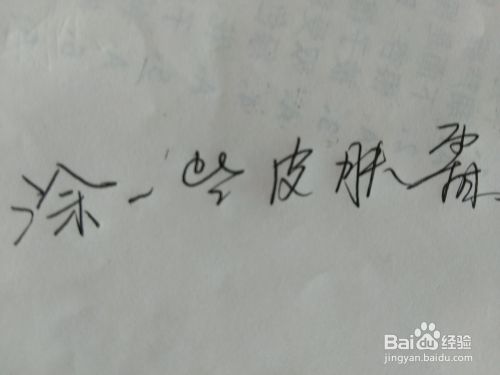 涂一些皮肤霜
Baidu经验
jingyan.baidu.com